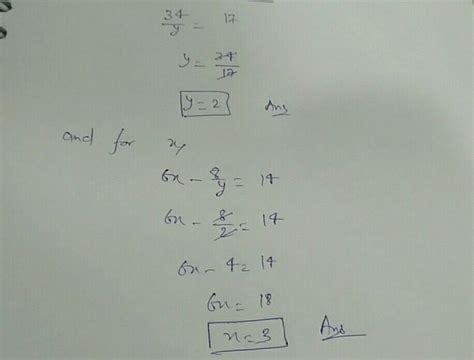 34/y = 17
y = 34/17
y = 2 Ans
and for x,
6x - 8/y = 14
6x - 8/2 = 14
6x - 4 = 14
6x = 18
x = 3 Ans